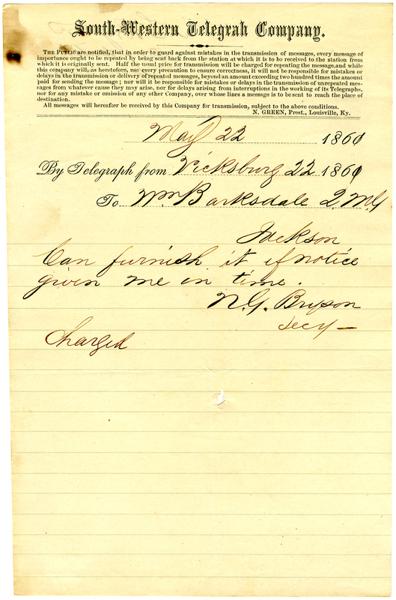 South-Western Telegrah Company.
THE PUBLIC are notified, that in order to guard against mistakes in the transmission of messages, every message of
importance ought to be repeated by being sent back from the station at which it is to be received to the station from
which it is originally sent. Half the usual price for transmission will be charged for repeating the message, and while
this company will, as heretofore, use every precaution to ensure correctness, it will not be responsible for mistakes or
delays in the transmission or delivery of repeated messages, beyond an amount exceeding two hundred times the amount
paid for sending the message; nor will it be responsible for mistakes or delays in the transmission of unrepeated mess-
ages from whatever cause they may arise, nor for delays arising from interruptions in the working of its Telegraphs,
nor for any mistake or omission of any other Company, over whose lines a message is to be sent to reach the place of
destination.
All messages will hereafter be received by this Company for transmission, subject to the above conditions.
N. GREEN, Prest., Louisville, Ky.
May 22 1861
By Telegraph from Vicksburg 22 1861
To Wm Barksdale Q.M.G
Jackson
Can furnish it if notice
given me in time.
N.G. Bryson
Secy
Charged